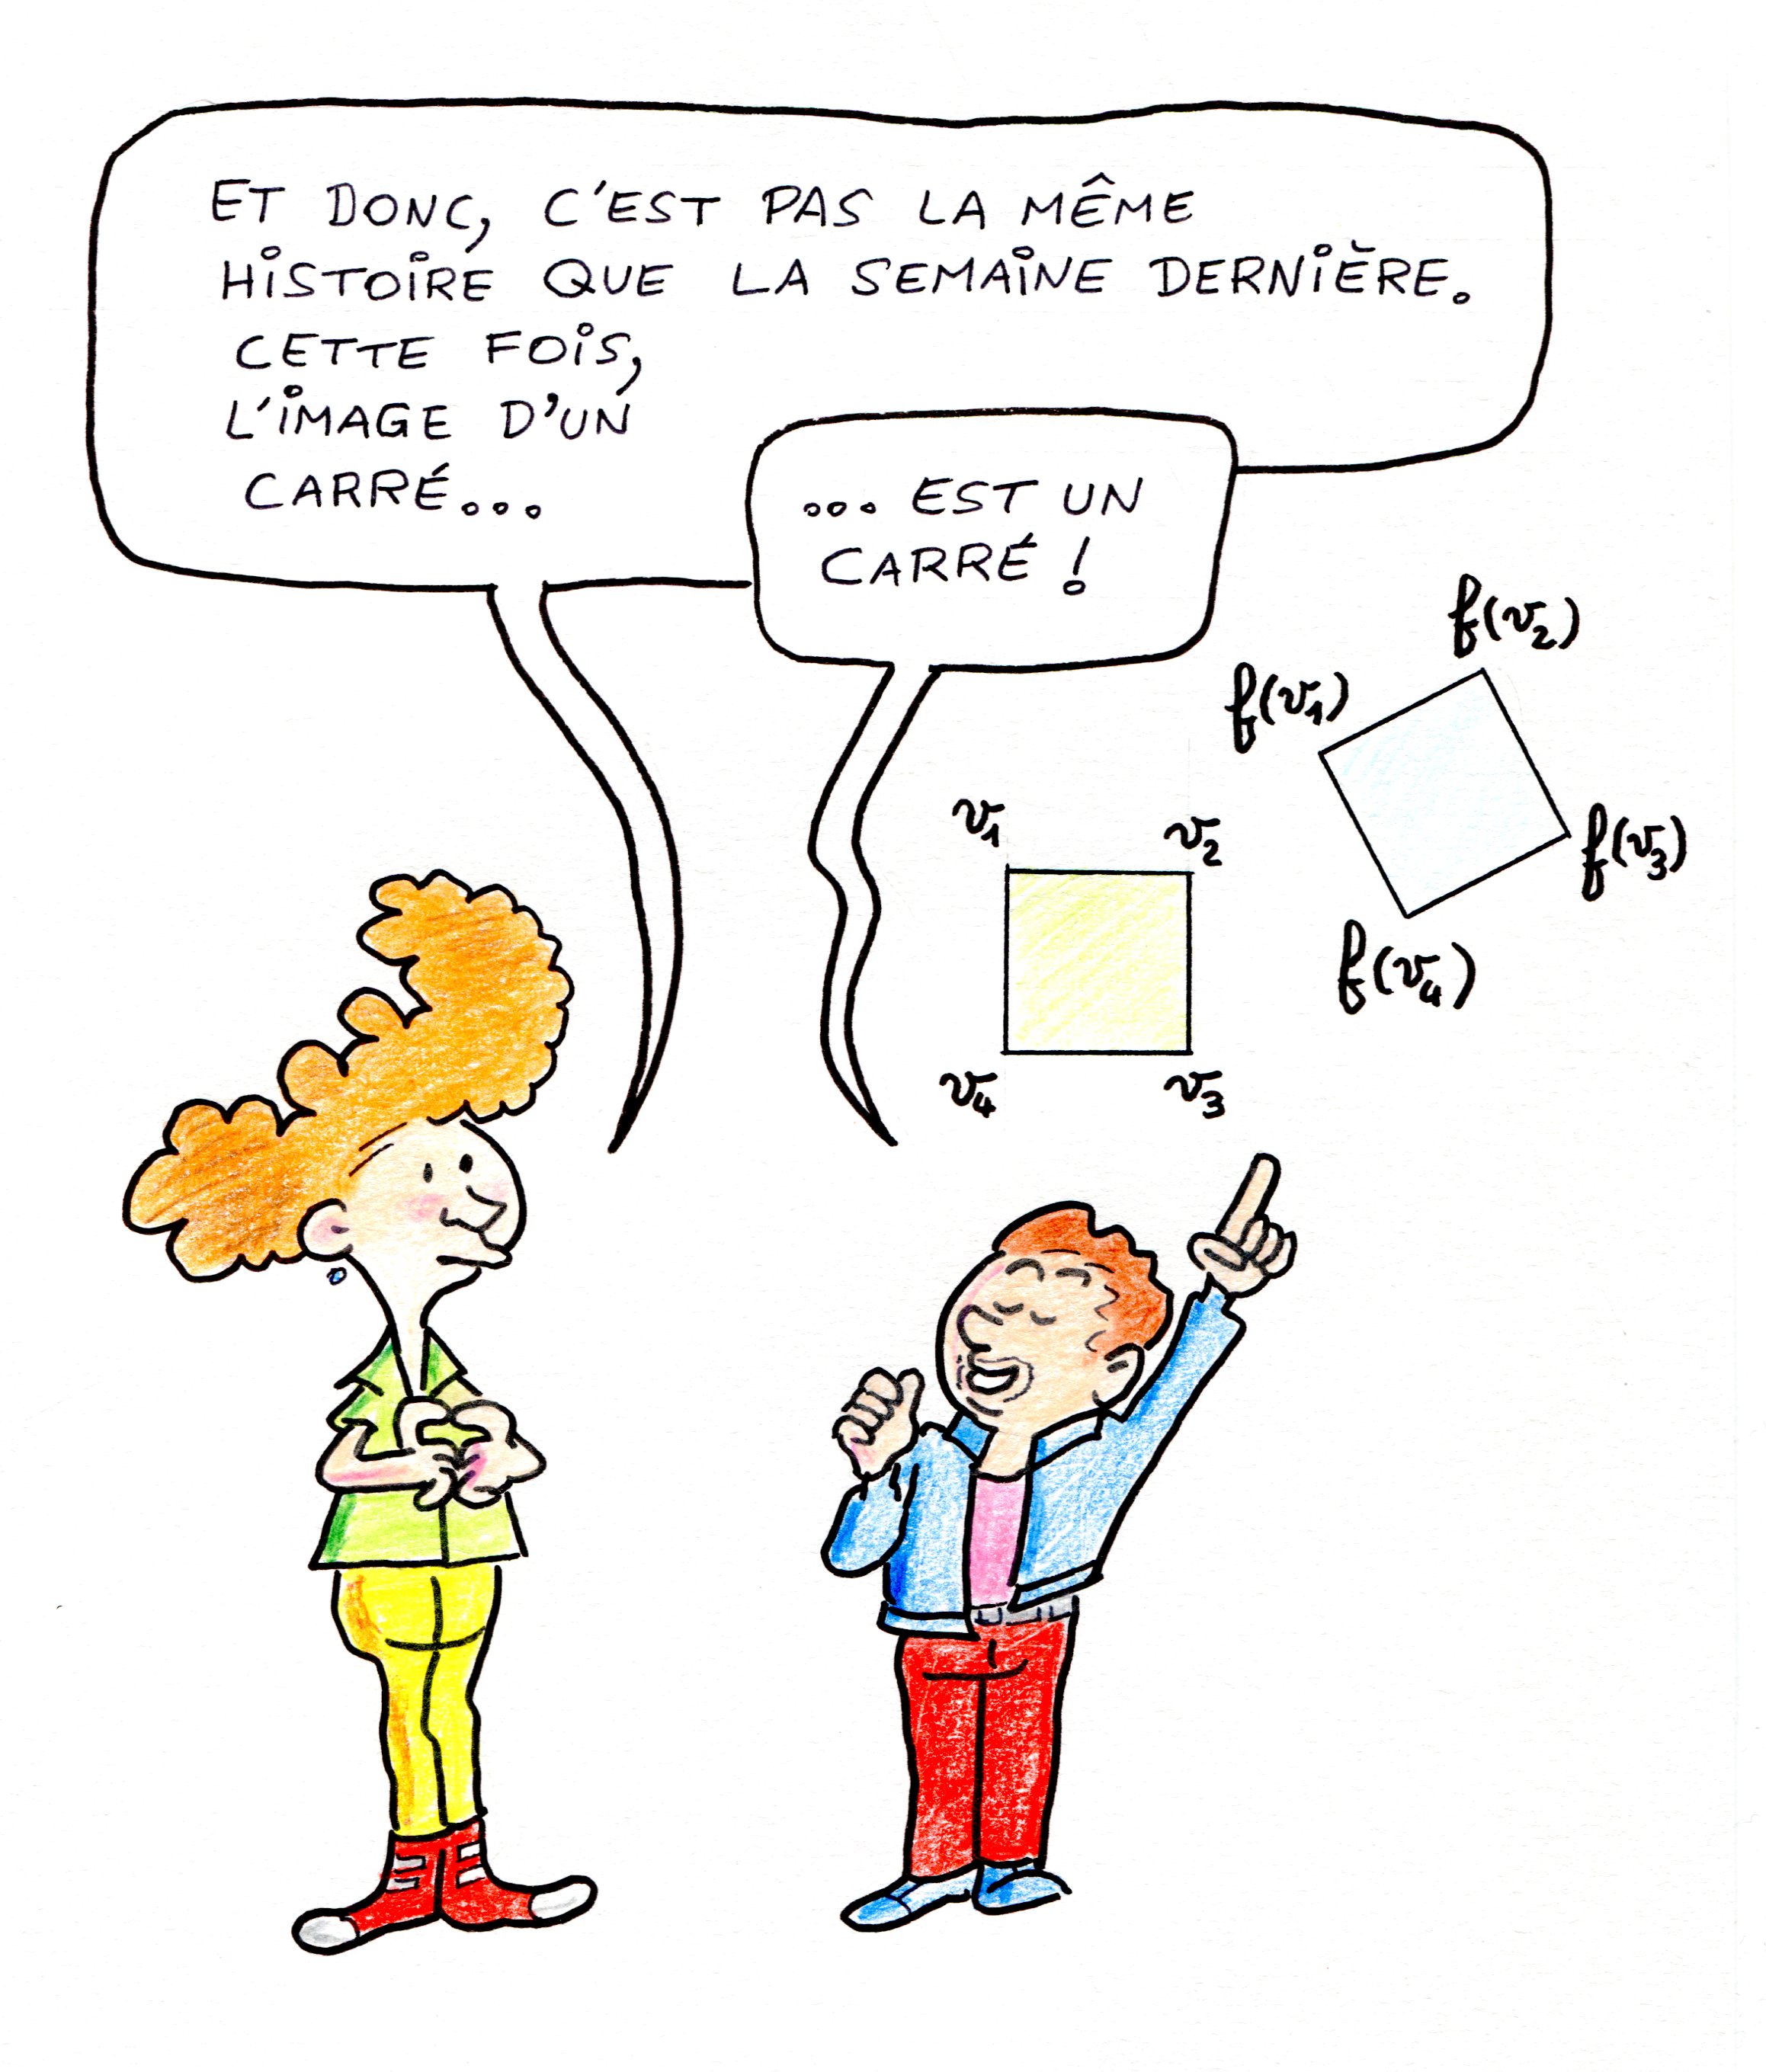 ET DONC, C'EST PAS LA MÊME
HISTOIRE QUE LA SEMAINE DERNIÈRE.
CETTE FOIS,
L'IMAGE D'UN
CARRÉ...
... EST UN
CARRÉ !
f(v₂)
f(v₁)
v₁
v₂
f(v₃)
f(v₄)
v₄
v₃